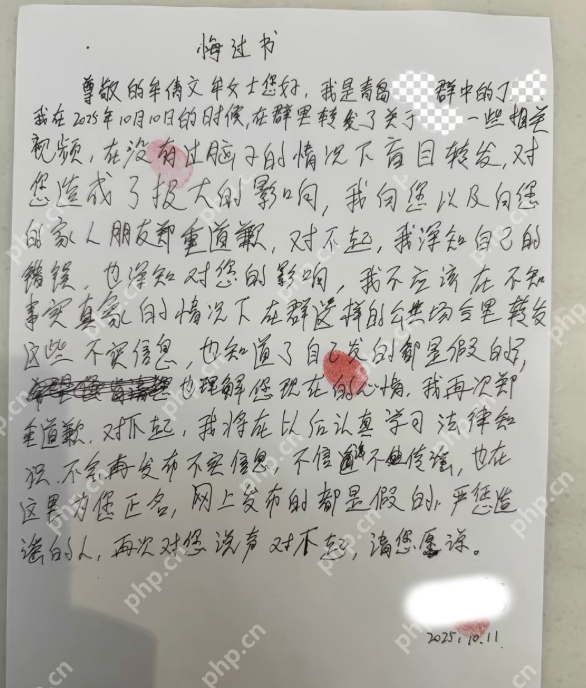 悔过书
尊敬的牟倩文牟女士您好,我是青岛 群中的丁
我在2025年10月10日的时候,在群里转发了关于 一些相关
视频,在没有过脑子的情况下盲目转发,对
您造成了极大的影响,我向您以及向您
的家人朋友郑重道歉,对不起,我深知自己的
错误,也深知对您的影响,我不应该在不知
事实真象的情况下在群这样的公共场合里转发
这些不实信息,也知道了自己发的都是假的,
也理解您现在的心情,我再次郑
重道歉,对不起,我将在以后认真学习法律知
识,不会再发布不实信息,不信谣不传谣,也在
这里为您正名,网上发布的都是假的,严惩造
谣的人,再次对您说声对不起,请您原谅。
2025.10.11
php.cn
php.cn
php.cn
php.cn
php.cn
php.cn
php.cn
php.cn
php.cn